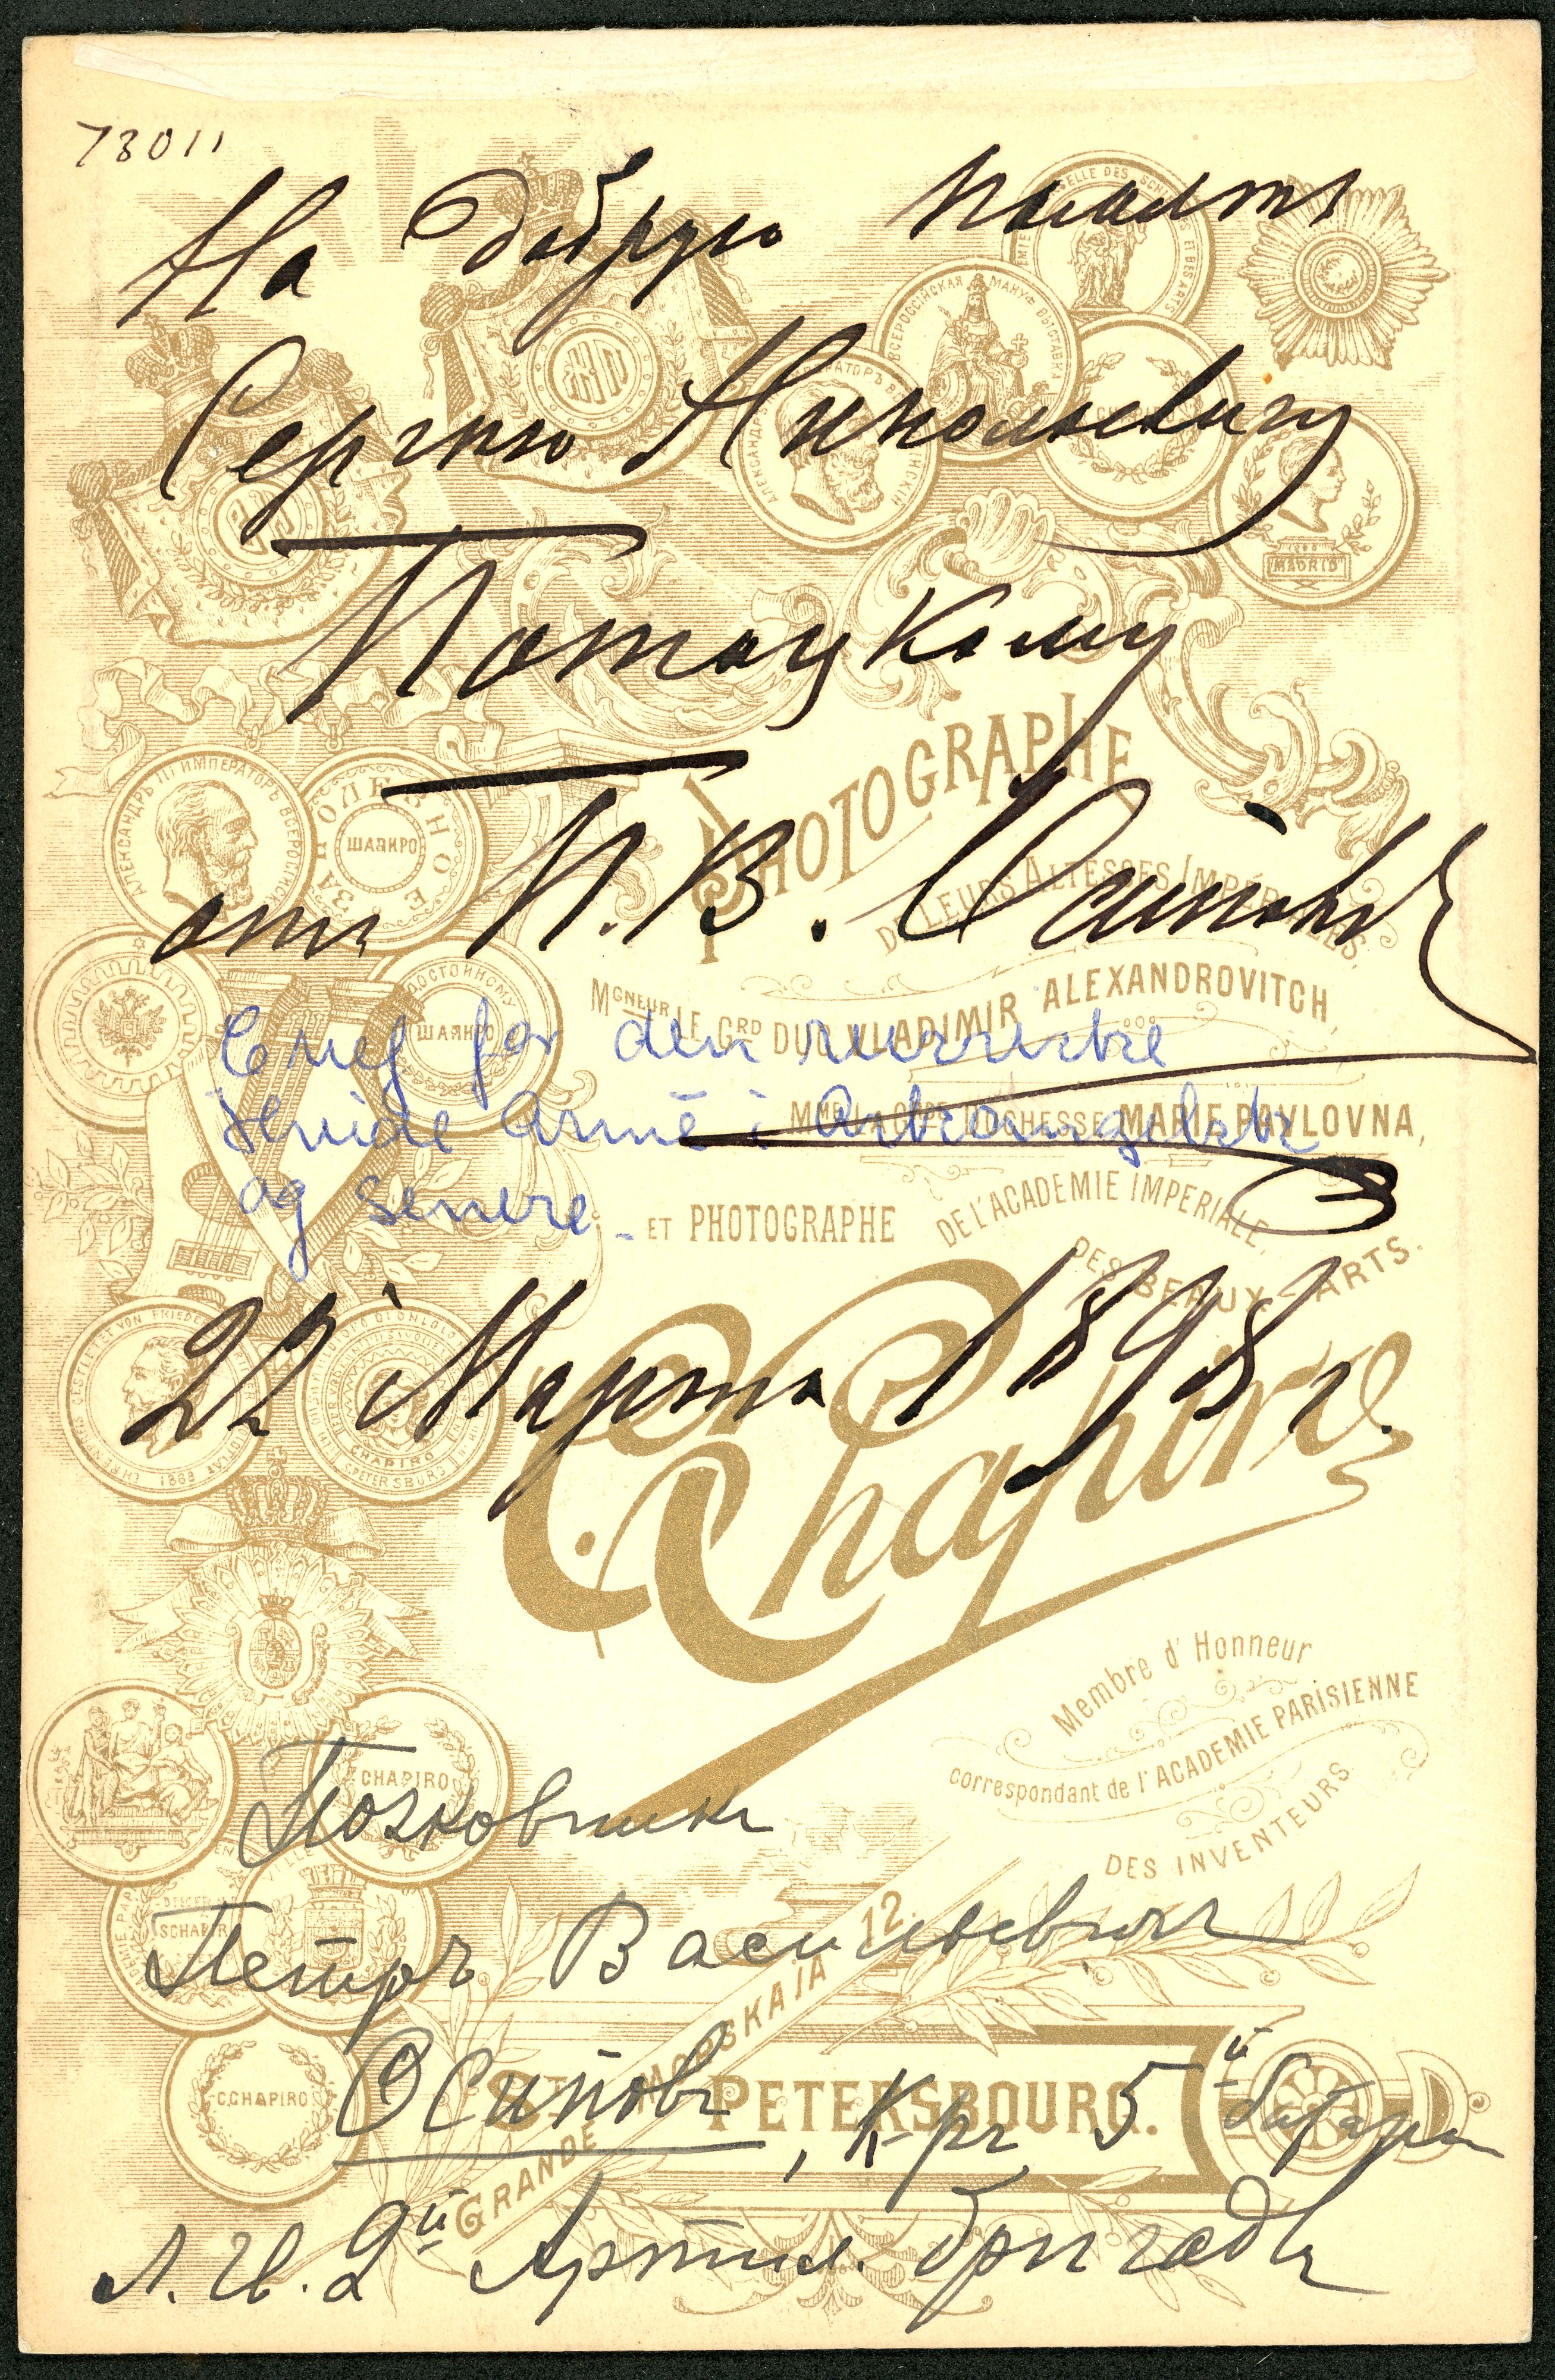 73011
На добрую память
Сергѣю Николаевичу
Потоцкому
отъ П. В. Осипова
Chef for den russiske
Hvide Armé i Arkangelsk
og senere
22 Марта 1898 г.
Полковникъ
Петръ Васильевичъ
Осиповъ, К-ръ 5й батареи
Л. Гв. 2й Артил. бригады
PHOTOGRAPHE
DE LEURS ALTESSES IMPÉRIALES,
MGNEUR LE GRD DUC VLADIMIR ALEXANDROVITCH,
MME LA GDE DUCHESSE MARIE PAVLOVNA,
ET PHOTOGRAPHE DE L'ACADEMIE IMPERIALE,
DES BEAUX-ARTS.
C. Chapiro
Membre d'Honneur
correspondant de l'ACADEMIE PARISIENNE
DES INVENTEURS
ST PETERSBOURG.
GRANDE MORSKAIA 12.
ВСЕРОССІЙСКАЯ МАНУФ ВЫСТАВКА
MADRID
АЛЕКСАНДРЪ III ИМПЕРАТОРЪ ВСЕРОССІЙСК
ЗА ПОЛЕЗНОЕ
ШАПИРО
ДОСТОЙНОМУ
1868
CHAPIRO
ST PETERSBURG
CHAPIRO
C.CHAPIRO